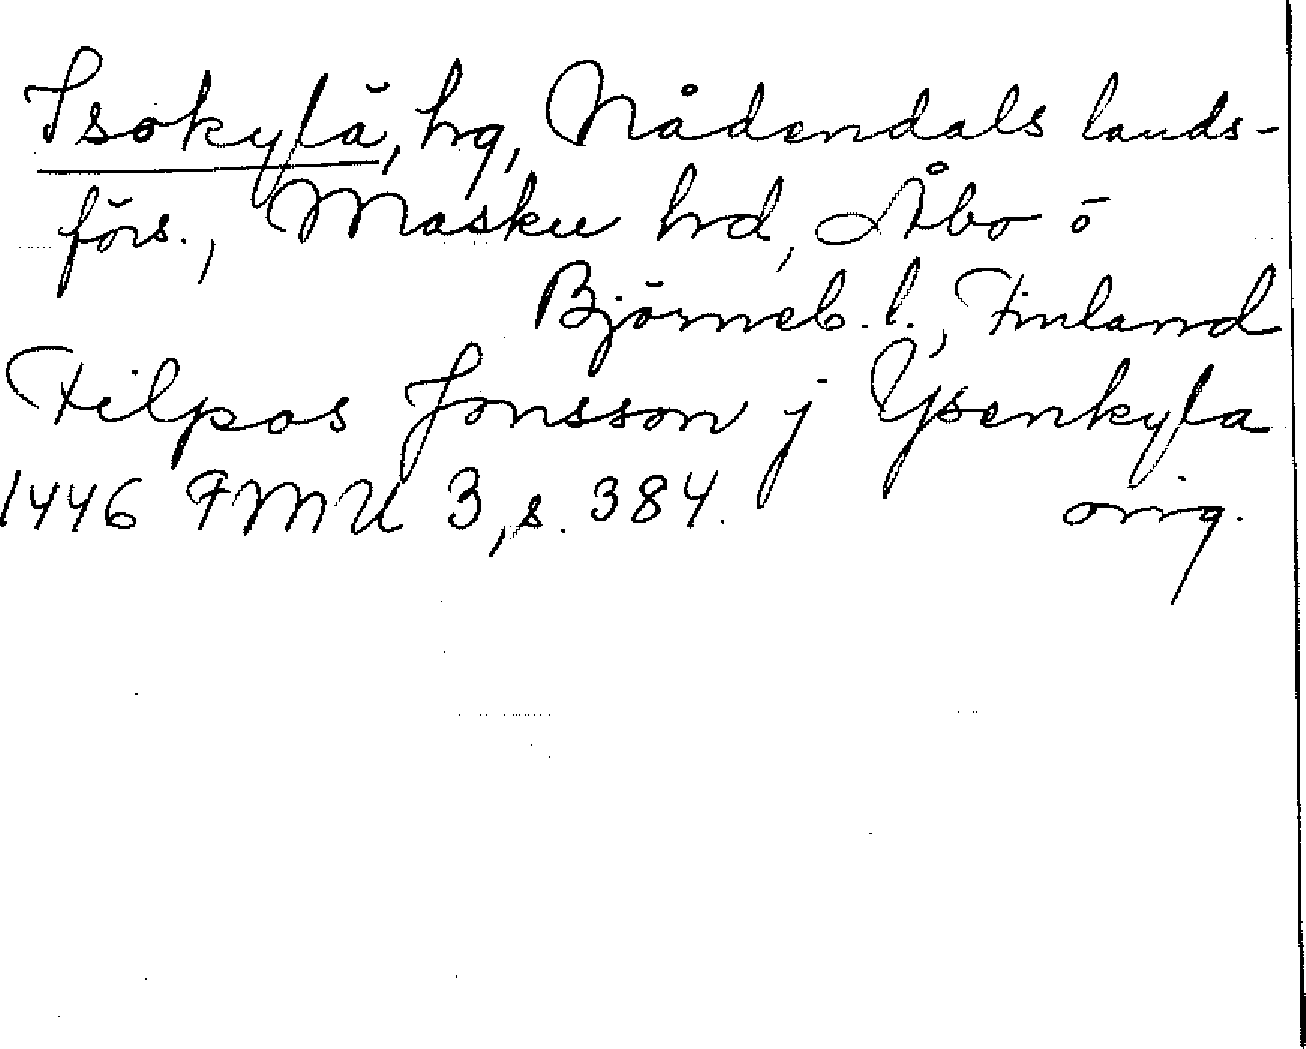 Isokylä, hg, Nådendals lands-
förs., Masku hrd, Åbo o
Björneb. l., Finland
Filpos Jonsson j Ysenkyla
1446 FMU 3, s. 384. orig.